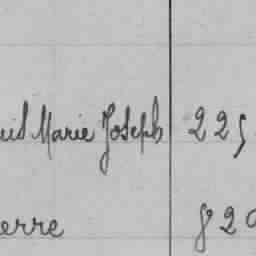 uis Marie Joseph 225
erre 820